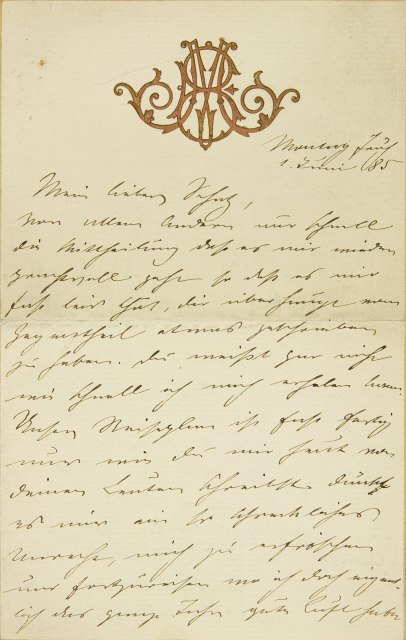 Montag Früh
1. Juni 85
Mein lieber Schatz,
Vor allem Andern nur schnell
die Mittheilung daß es mir wieder
prachtvoll geht so daß es mir
fast leid thut, dir überhaupt vom
Gegentheil etwas geschrieben
zu haben. Du weißt gar nicht
wie schnell ich mich erholen kann.
Unser Reiseplan ist fast fertig
nur wie du mir heut von
deinen Leuten schreibst dünkt
es mir ein so schreckliches
Unrecht, mich zu erfrischen
und fortzureisen wo ich doch eigent-
lich das ganze Jahr gute Luft habe